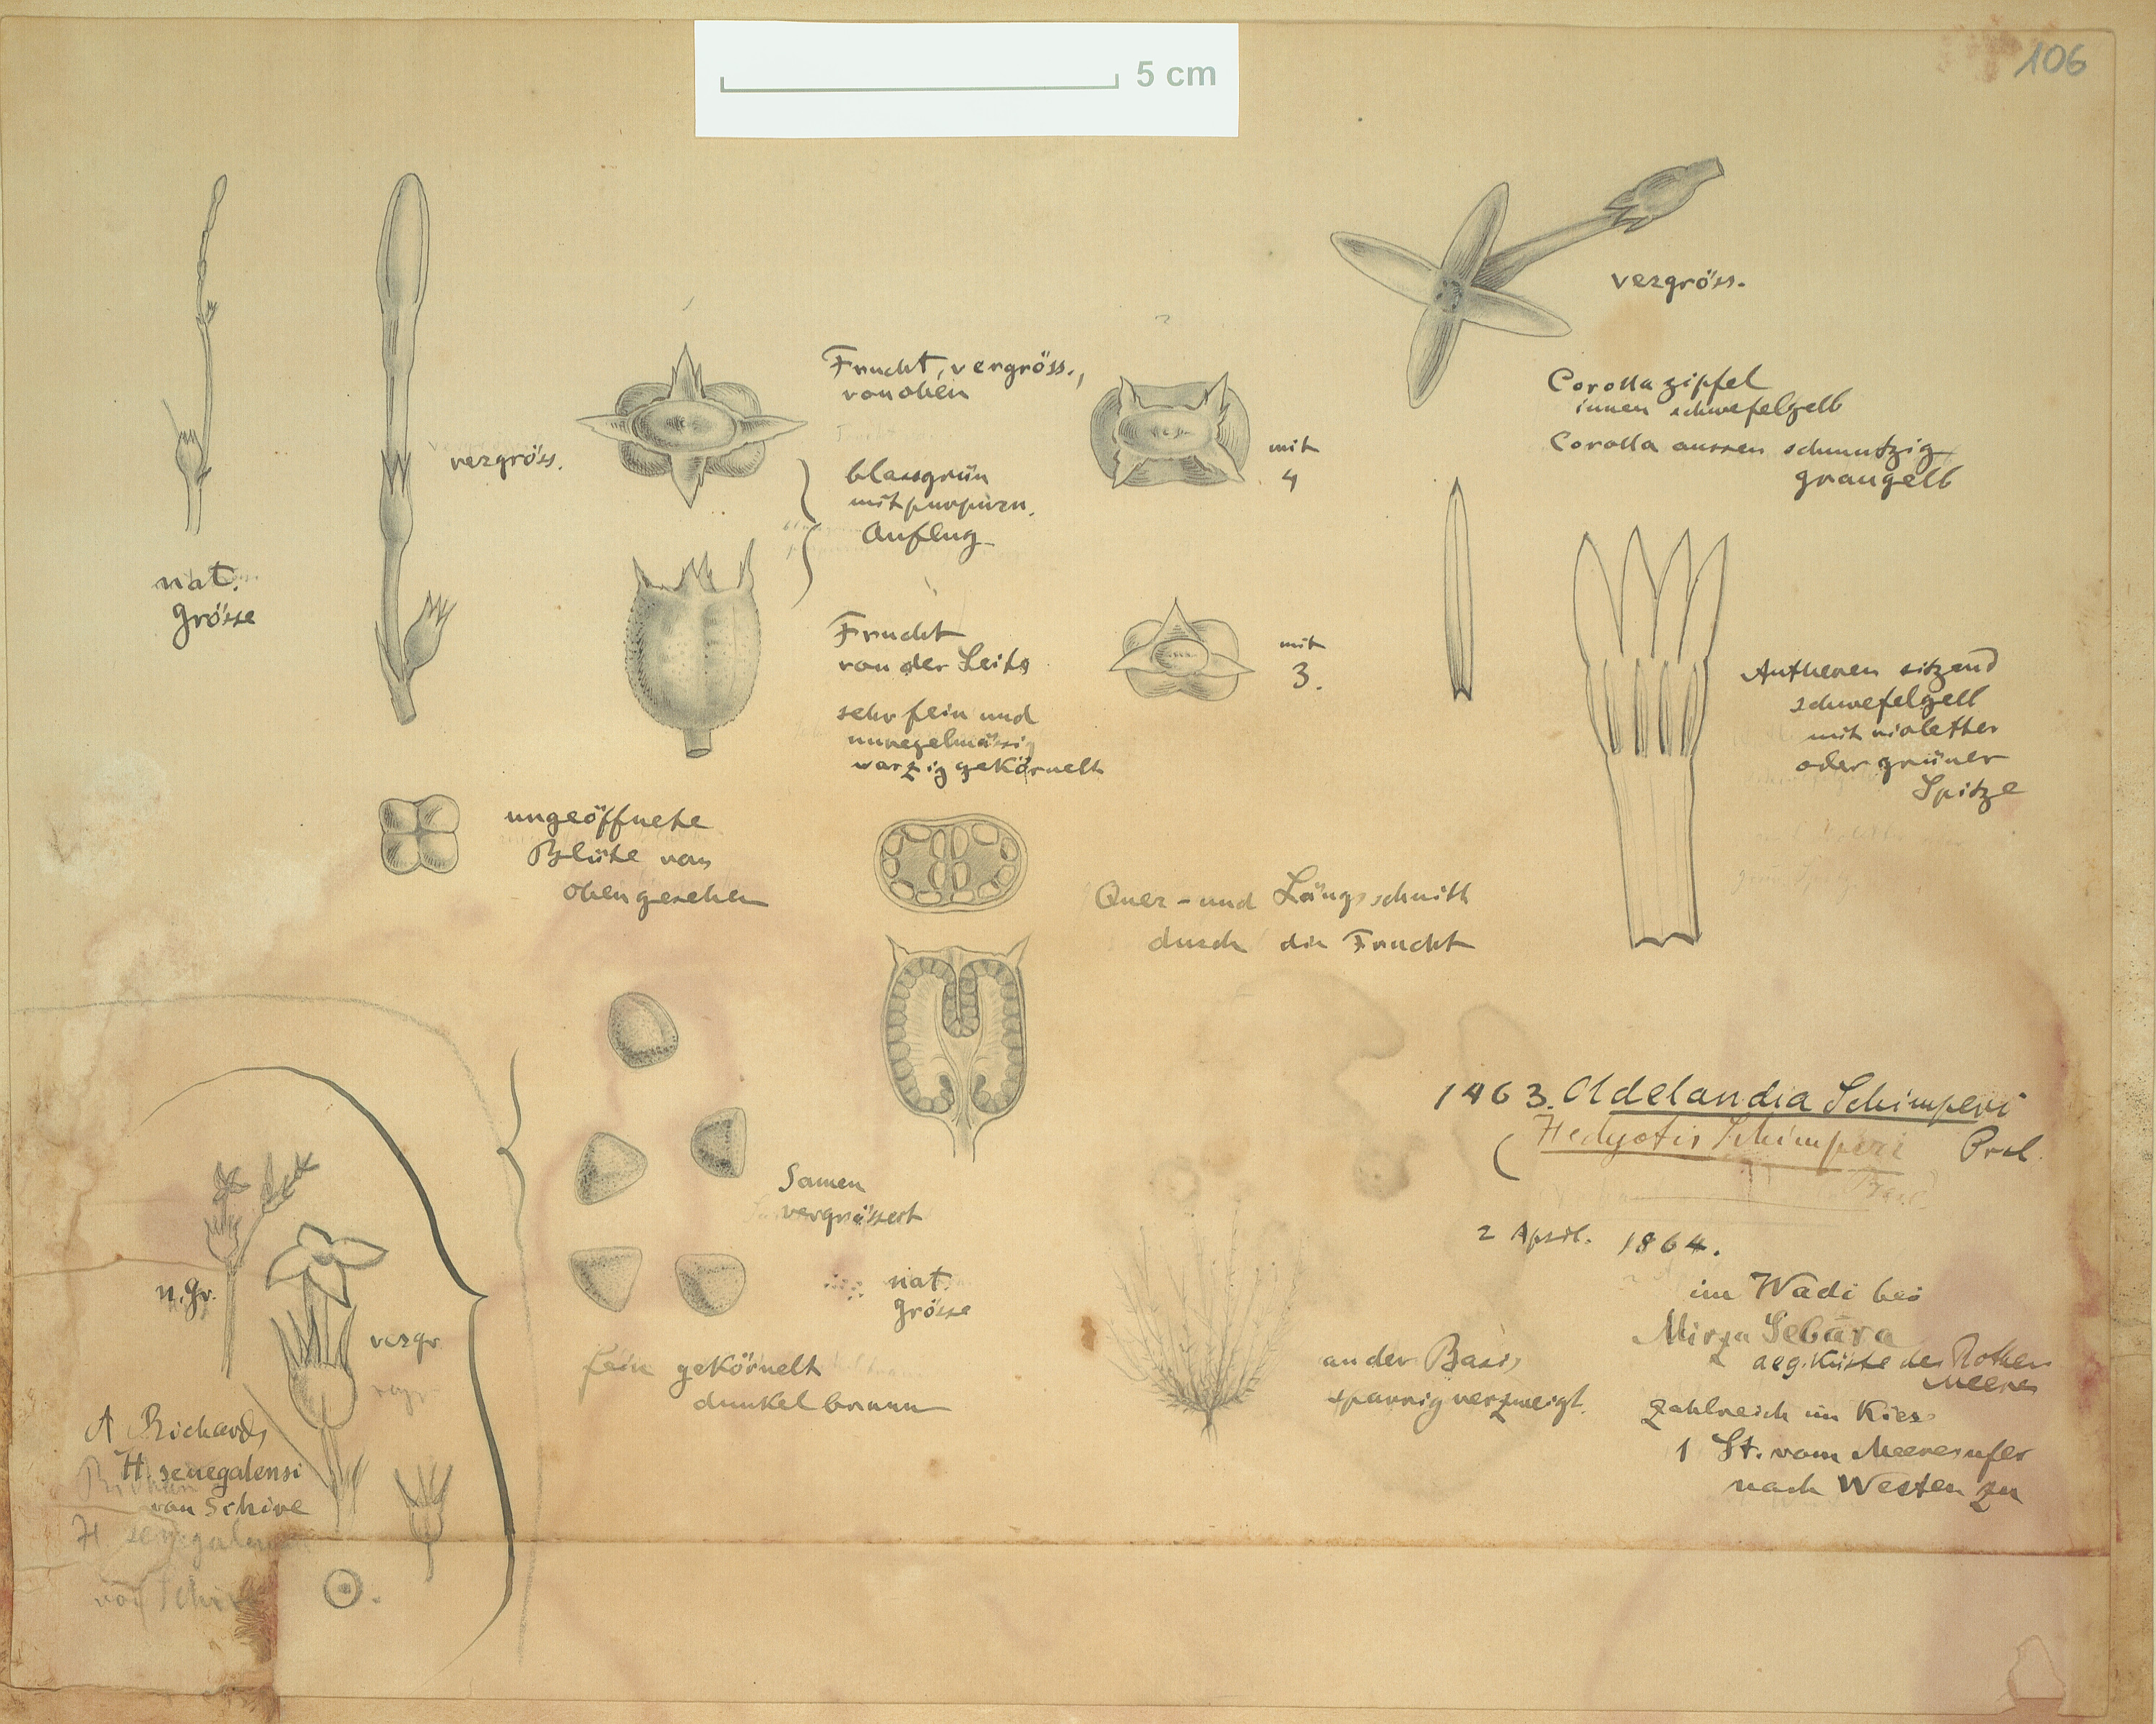 5 cm
106
nat.
Grösse
vergröss.
Frucht, vergröss.,
von oben
blassgrün
mit purpurn.
Anflug
mit
4
vergröss.
Corollazipfel
innen schwefelgelb
Corolla aussen schmutzig
graugelb
Frucht
von der Seite
sehr fein und
unregelmässig
warzig gekörnelt
mit
3.
Antheren sitzend
schwefelgelb
mit violetter
oder grüner
Spitze
ungeöffnete
Blüte von
oben gesehen
Quer- und Längsschnitt
durch die Frucht
Samen
vergrössert
nat.
Grösse
fein gekörnelt
dunkelbraun
1463. Oldelandia Schimperi
(Hedyotis Schimperi Presl.
2 April. 1864.
im Wadi bei
Mirza Sebāra
aeg. Küste des Rothen
Meeres
zahlreich im Kies
1 St. vom Meeresufer
nach Westen zu
an der Basis
sparrig verzweigt.
n. Gr.
vergr
A Richard,
H. senegalensi
von Schire
H senegalen
von Schire